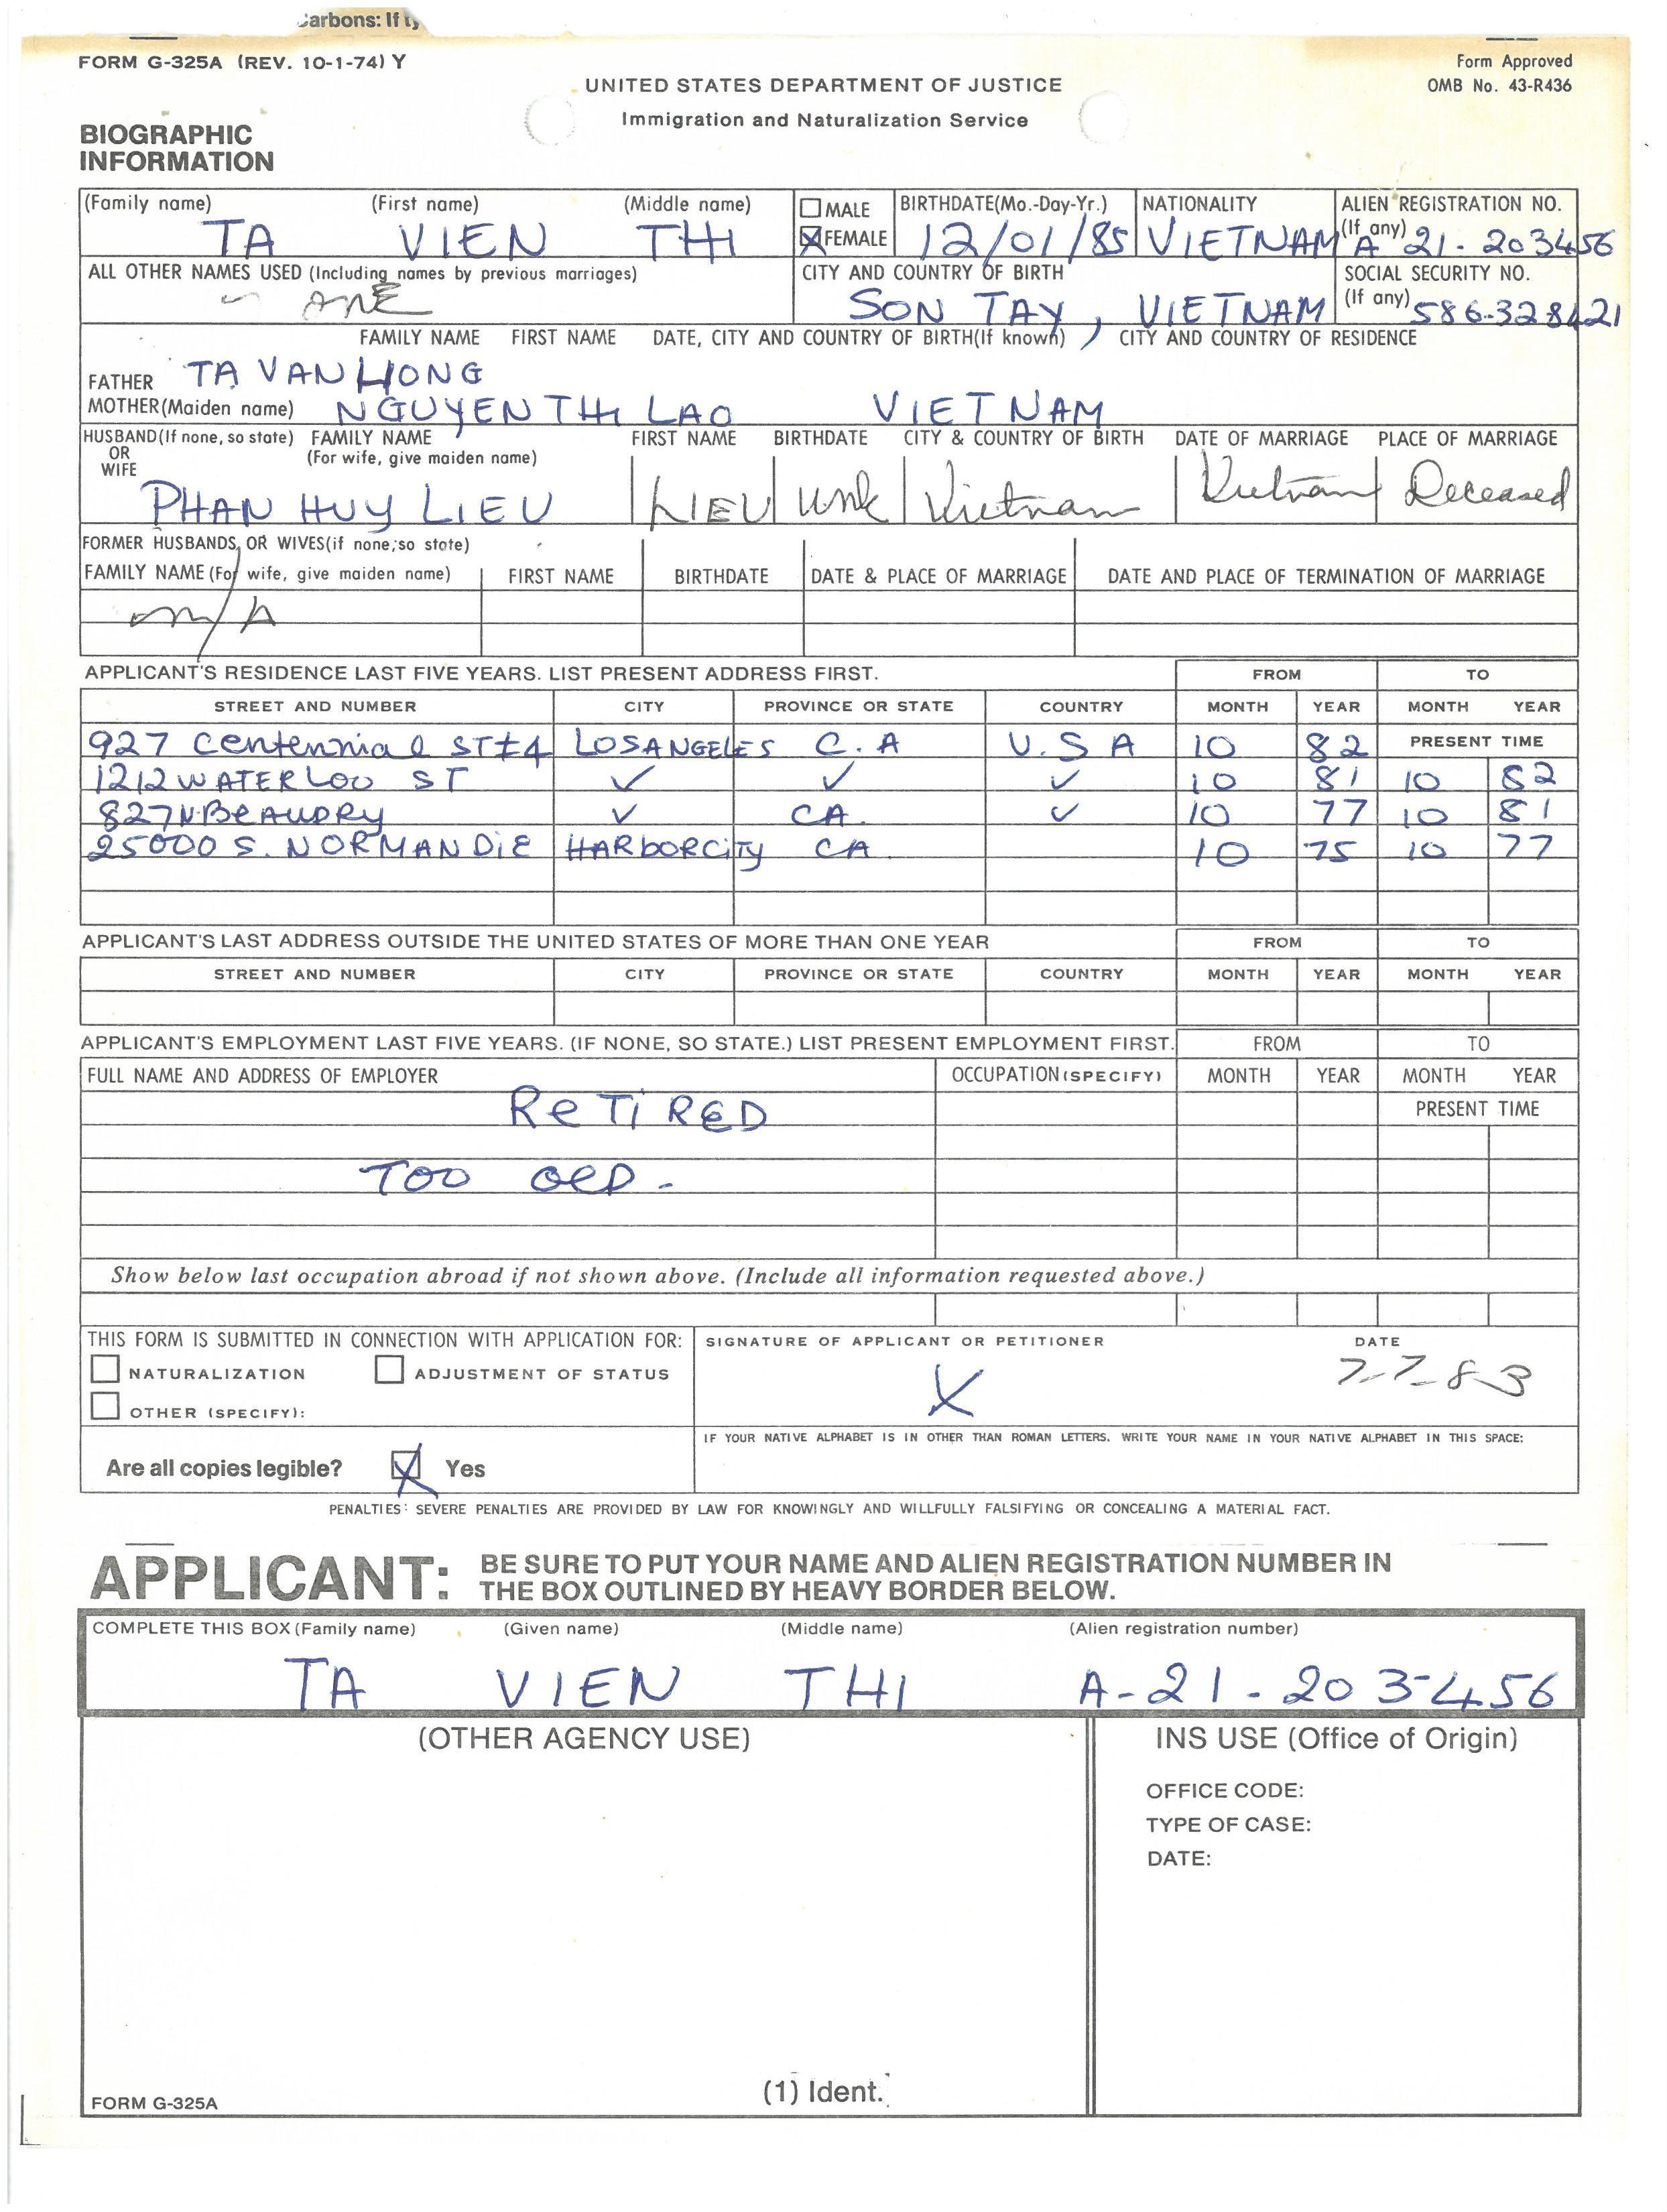 Carbons: If ty
FORM G-325A (REV. 10-1-74) Y
Form Approved
OMB No. 43-R436
UNITED STATES DEPARTMENT OF JUSTICE
Immigration and Naturalization Service
BIOGRAPHIC
INFORMATION
(Family name) (First name) (Middle name)
TA VIEN THI
MALE
FEMALE
BIRTHDATE(Mo.-Day-Yr.)
12/01/85
NATIONALITY
VIETNAM
ALIEN REGISTRATION NO.
(If any) A 21-203456
ALL OTHER NAMES USED (Including names by previous marriages)
CITY AND COUNTRY OF BIRTH
SON TAY, VIETNAM
SOCIAL SECURITY NO.
(If any) 586-328421
FAMILY NAME FIRST NAME DATE, CITY AND COUNTRY OF BIRTH(If known) CITY AND COUNTRY OF RESIDENCE
FATHER TA VAN HONG
MOTHER(Maiden name) NGUYEN THI LAO VIETNAM
HUSBAND(If none, so state) FAMILY NAME FIRST NAME BIRTHDATE CITY & COUNTRY OF BIRTH DATE OF MARRIAGE PLACE OF MARRIAGE
OR (For wife, give maiden name)
WIFE
PHAN HUY LIEU LIEU unk Vietnam Vietnam Deceased
FORMER HUSBANDS OR WIVES(if none, so state)
FAMILY NAME (For wife, give maiden name) FIRST NAME BIRTHDATE DATE & PLACE OF MARRIAGE DATE AND PLACE OF TERMINATION OF MARRIAGE
n/A
APPLICANT'S RESIDENCE LAST FIVE YEARS. LIST PRESENT ADDRESS FIRST. FROM TO
STREET AND NUMBER CITY PROVINCE OR STATE COUNTRY MONTH YEAR MONTH YEAR
927 Centennial ST#4 LOSANGELES C.A U.S A 10 82 PRESENT TIME
1212 WATERLOO ST ✓ ✓ ✓ 10 81 10 82
827 N. BEAUDRY ✓ CA. ✓ 10 77 10 81
25000 S. NORMANDIE HARBORCITY CA 10 75 10 77
APPLICANT'S LAST ADDRESS OUTSIDE THE UNITED STATES OF MORE THAN ONE YEAR FROM TO
STREET AND NUMBER CITY PROVINCE OR STATE COUNTRY MONTH YEAR MONTH YEAR
APPLICANT'S EMPLOYMENT LAST FIVE YEARS. (IF NONE, SO STATE.) LIST PRESENT EMPLOYMENT FIRST. FROM TO
FULL NAME AND ADDRESS OF EMPLOYER OCCUPATION (SPECIFY) MONTH YEAR MONTH YEAR
RETIRED PRESENT TIME
TOO OLD -
Show below last occupation abroad if not shown above. (Include all information requested above.)
THIS FORM IS SUBMITTED IN CONNECTION WITH APPLICATION FOR:
NATURALIZATION ADJUSTMENT OF STATUS
OTHER (SPECIFY):
SIGNATURE OF APPLICANT OR PETITIONER DATE
X 7-7-83
IF YOUR NATIVE ALPHABET IS IN OTHER THAN ROMAN LETTERS. WRITE YOUR NAME IN YOUR NATIVE ALPHABET IN THIS SPACE:
Are all copies legible? X Yes
PENALTIES: SEVERE PENALTIES ARE PROVIDED BY LAW FOR KNOWINGLY AND WILLFULLY FALSIFYING OR CONCEALING A MATERIAL FACT.
APPLICANT: BE SURE TO PUT YOUR NAME AND ALIEN REGISTRATION NUMBER IN
THE BOX OUTLINED BY HEAVY BORDER BELOW.
COMPLETE THIS BOX (Family name) (Given name) (Middle name) (Alien registration number)
TA VIEN THI A-21-203-456
(OTHER AGENCY USE)
INS USE (Office of Origin)
OFFICE CODE:
TYPE OF CASE:
DATE:
(1) Ident.
FORM G-325A